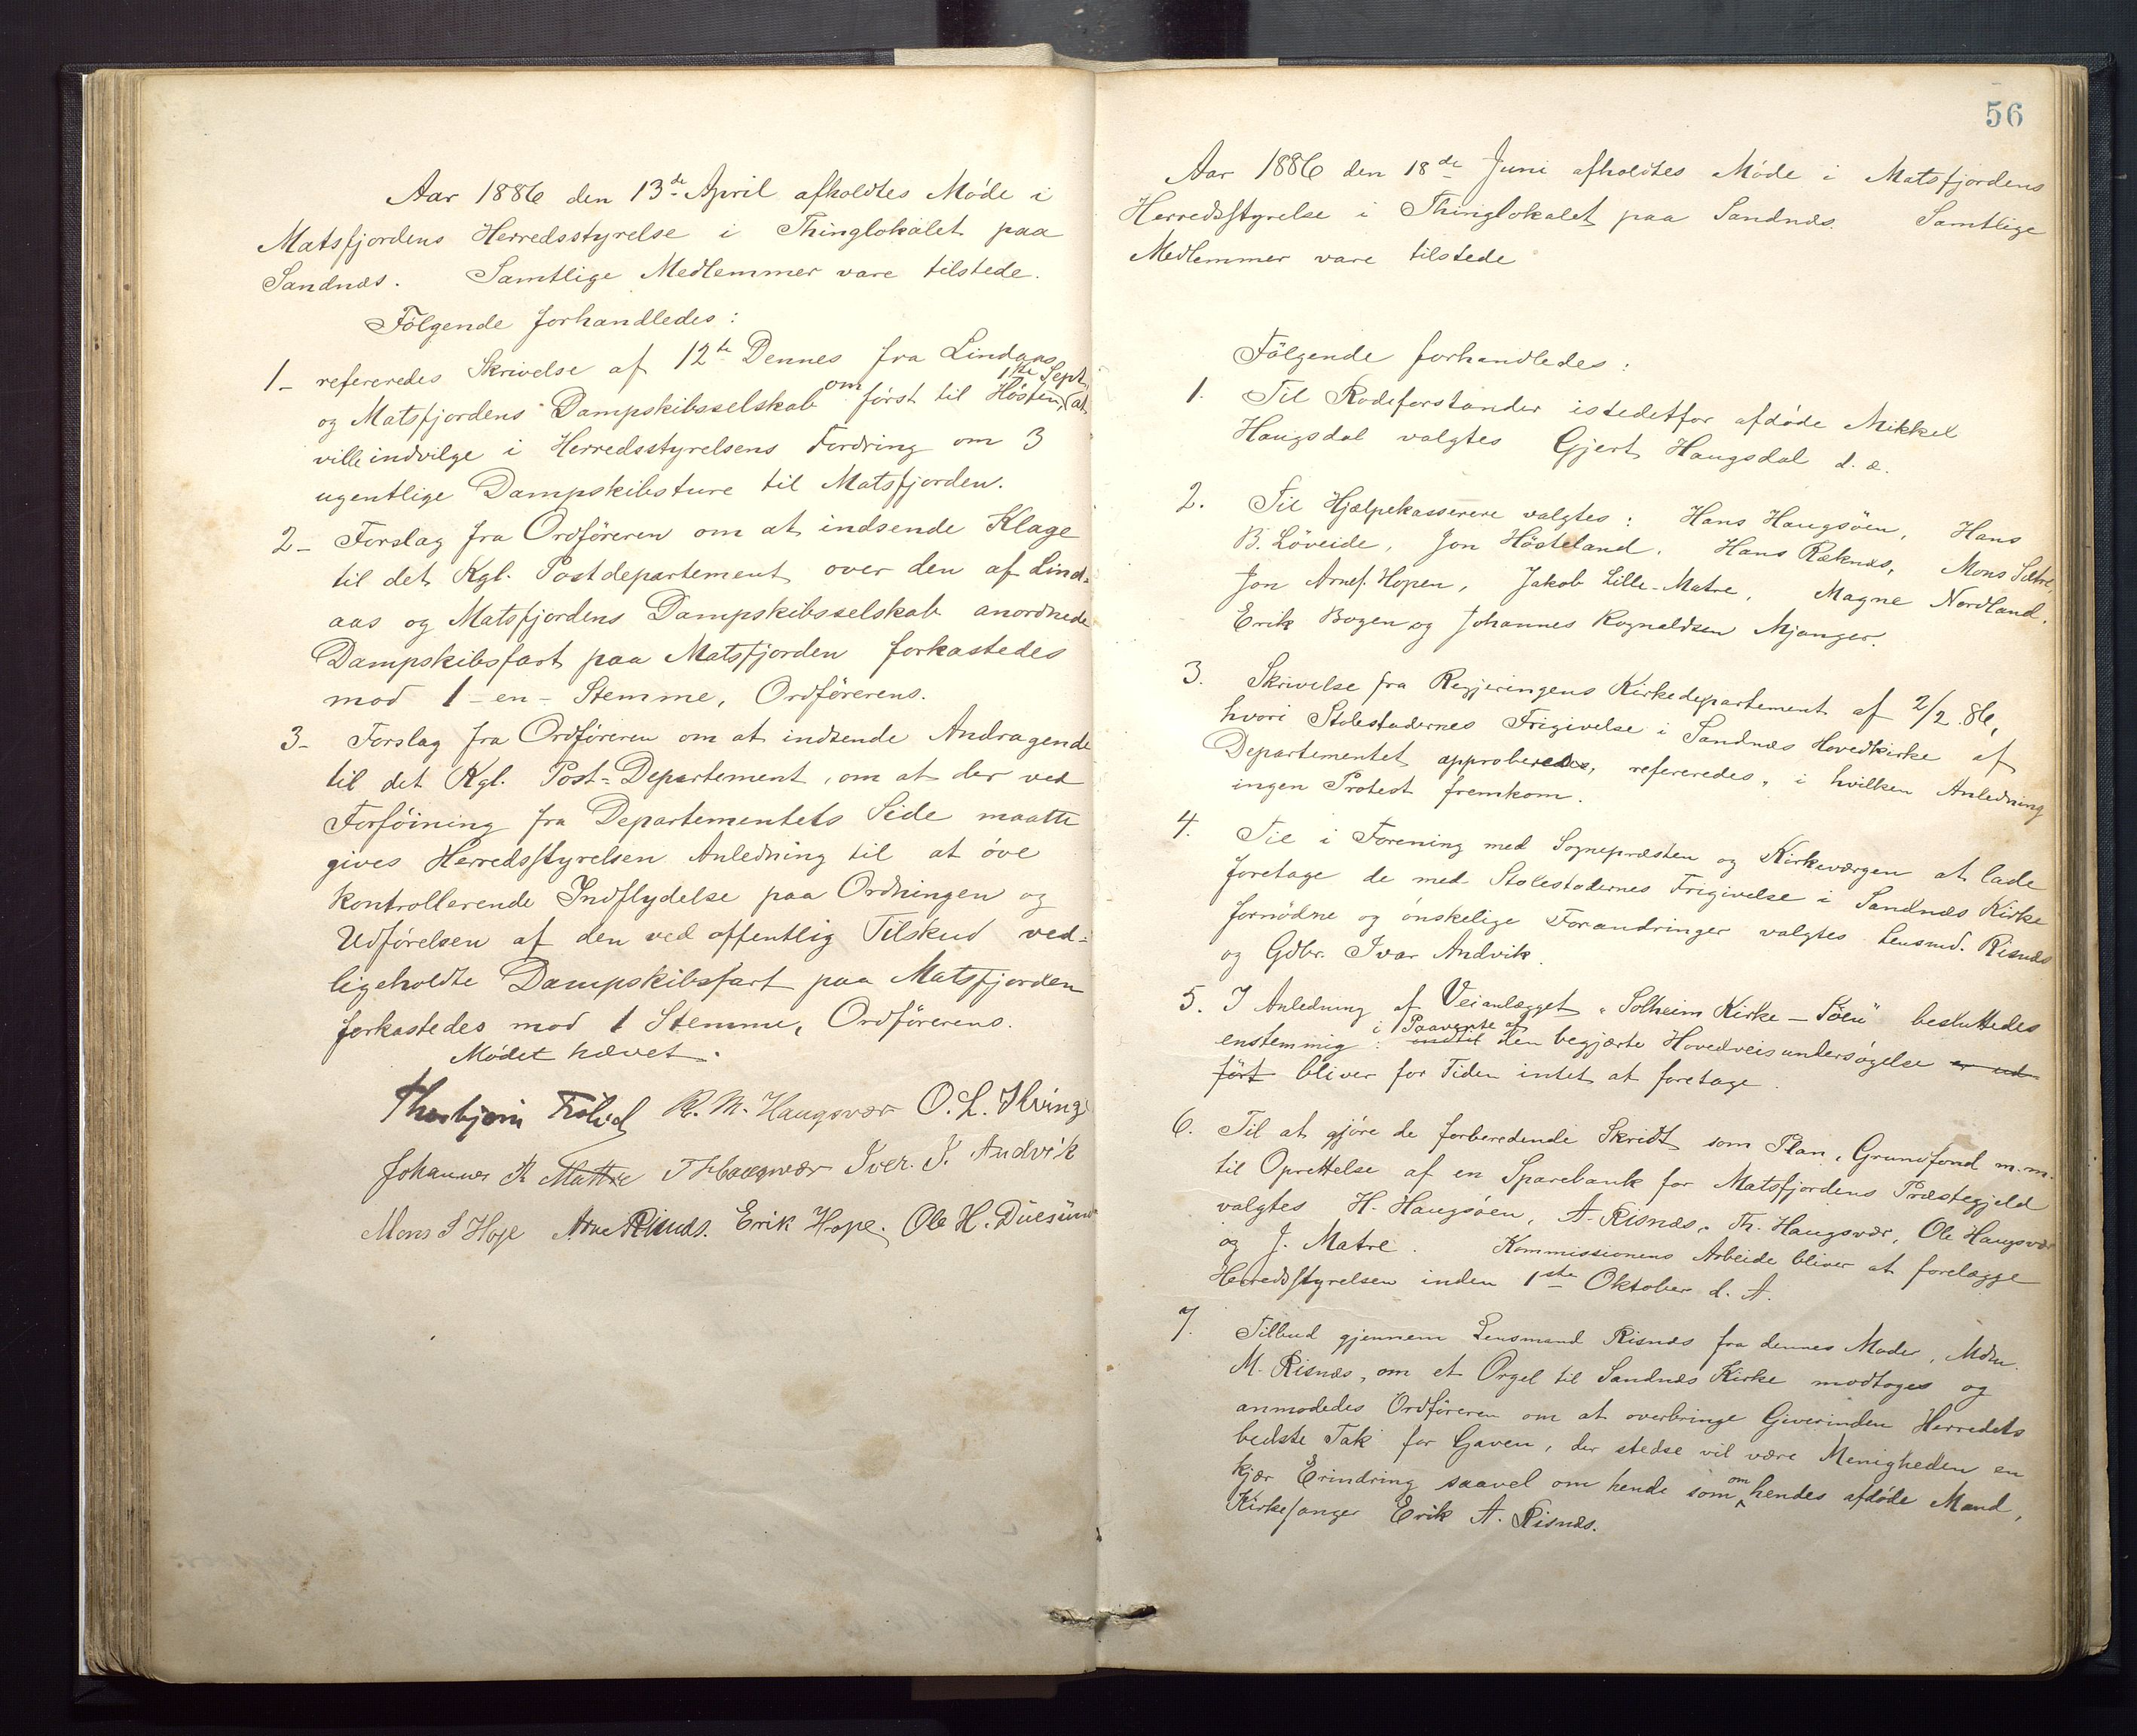 Aar 1886 den 13de April afholdtes Møde i
Matsfjordens Herredsstyrelse i Thinglokalet paa
Sandnæs. Samtlige Medlemmer vare tilstede.
Følgende forhandledes:
1- refereredes Skrivelse af 12te Dennes fra Lindaas
og Matsfjordens Dampskibsselskab om først til Høsten, 1ste Sept, at
ville indvilge i Herredsstyrelsens Fordring om 3
ugentlige Dampskibsture til Matsfjorden.
2- Forslag fra Ordføreren om at indsende Klage
til det Kgl. Postdepartement over den af Lind-
aas og Matsfjordens Dampskibsselskab anordnede
Dampskibsfart paa Matsfjorden forkastedes
mod 1 - en - Stemme, Ordførerens.
3- Forslag fra Ordføreren om at indsende Andragende
til det Kgl. Post-Departement, om at der ved
Forføining fra Departementets Side maatte
gives Herredsstyrelsen Anledning til at øve
kontrollerende Indflydelse paa Ordningen og
Udførelsen af den ved offentlig Tilskud ved-
ligeholdte Dampskibsfart paa Matsfjorden
forkastedes mod 1 Stemme, Ordførerens.
Mødet hævet.
Thorbjørn R. M. Haugsvær O. L.
Johannes R Mattre Th Haugsvær Iver. J. Andvik
Mons S Hope Arne Risnæs. Erik Hope. Ole H. Duesund
56
Aar 1886 den 18de Juni afholdtes Møde i Matsfjordens
Herredsstyrelse i Thinglokalet paa Sandnæs. Samtlige
Medlemmer vare tilstede
Følgende forhandledes:
1. Til Rodeforstander istedetfor afdøde Mikkel
Haugsdal valgtes Gjert Haugsdal d. æ.
2. Til Hjælpekasserere valgtes: Hans Haugsøen, Hans
B. Løveide, Jon Høsteland, Hans Ræknæs, Mons Sætre,
Jon Arnes. Hopen, Jakob Lille-Matre, Magne Nordland,
Erik Bogen og Johannes Rognaldsen Mjanger.
3. Skrivelse fra Regjeringens Kirkedepartement af 2/2 86,
hvori Stolestadernes Frigivelse i Sandnæs Hovedkirke af
Departementet approberedes, refereredes, i hvilken Anledning
ingen Protest fremkom.
4. Til i Forening med Sognepræsten og Kirkeværgen at lade
foretage de med Stolestadernes Frigivelse i Sandnæs Kirke
fornødne og ønskelige Forandringer valgtes Lensmd. Risnæs
og Gdbr. Ivar Andvik.
5. I Anledning af Veianlægget "Solheim Kirke - Søen" besluttedes
enstemmig: indtil i Paavente af den begjærte Hovedveisundersøgelse er ud-
ført bliver for Tiden intet at foretage.
6. Til at gjøre de forberedende Skridt som Plan, Grundfond m.m.
til Oprettelse af en Sparebank for Matsfjordens Præstegjeld
valgtes H. Haugsøen, A. Risnæs, Th. Haugsvær, Ole Haugsvær
og J. Matre. Kommissionens Arbeide bliver at forelægge
Herredsstyrelsen inden 1ste Oktober d. A.
7. Tilbud gjennem Lensmand Risnæs fra dennes Moder, Mdm.
M. Risnæs, om et Orgel til Sandnæs Kirke modtoges og
anmodedes Ordføreren om at overbringe Giverinden Herredets
bedste Tak for Gaven, der stedse vil være Menigheden en
kjær Erindring saavel om hende som om hendes afdøde Mand,
Kirkesanger Erik A. Risnæs.